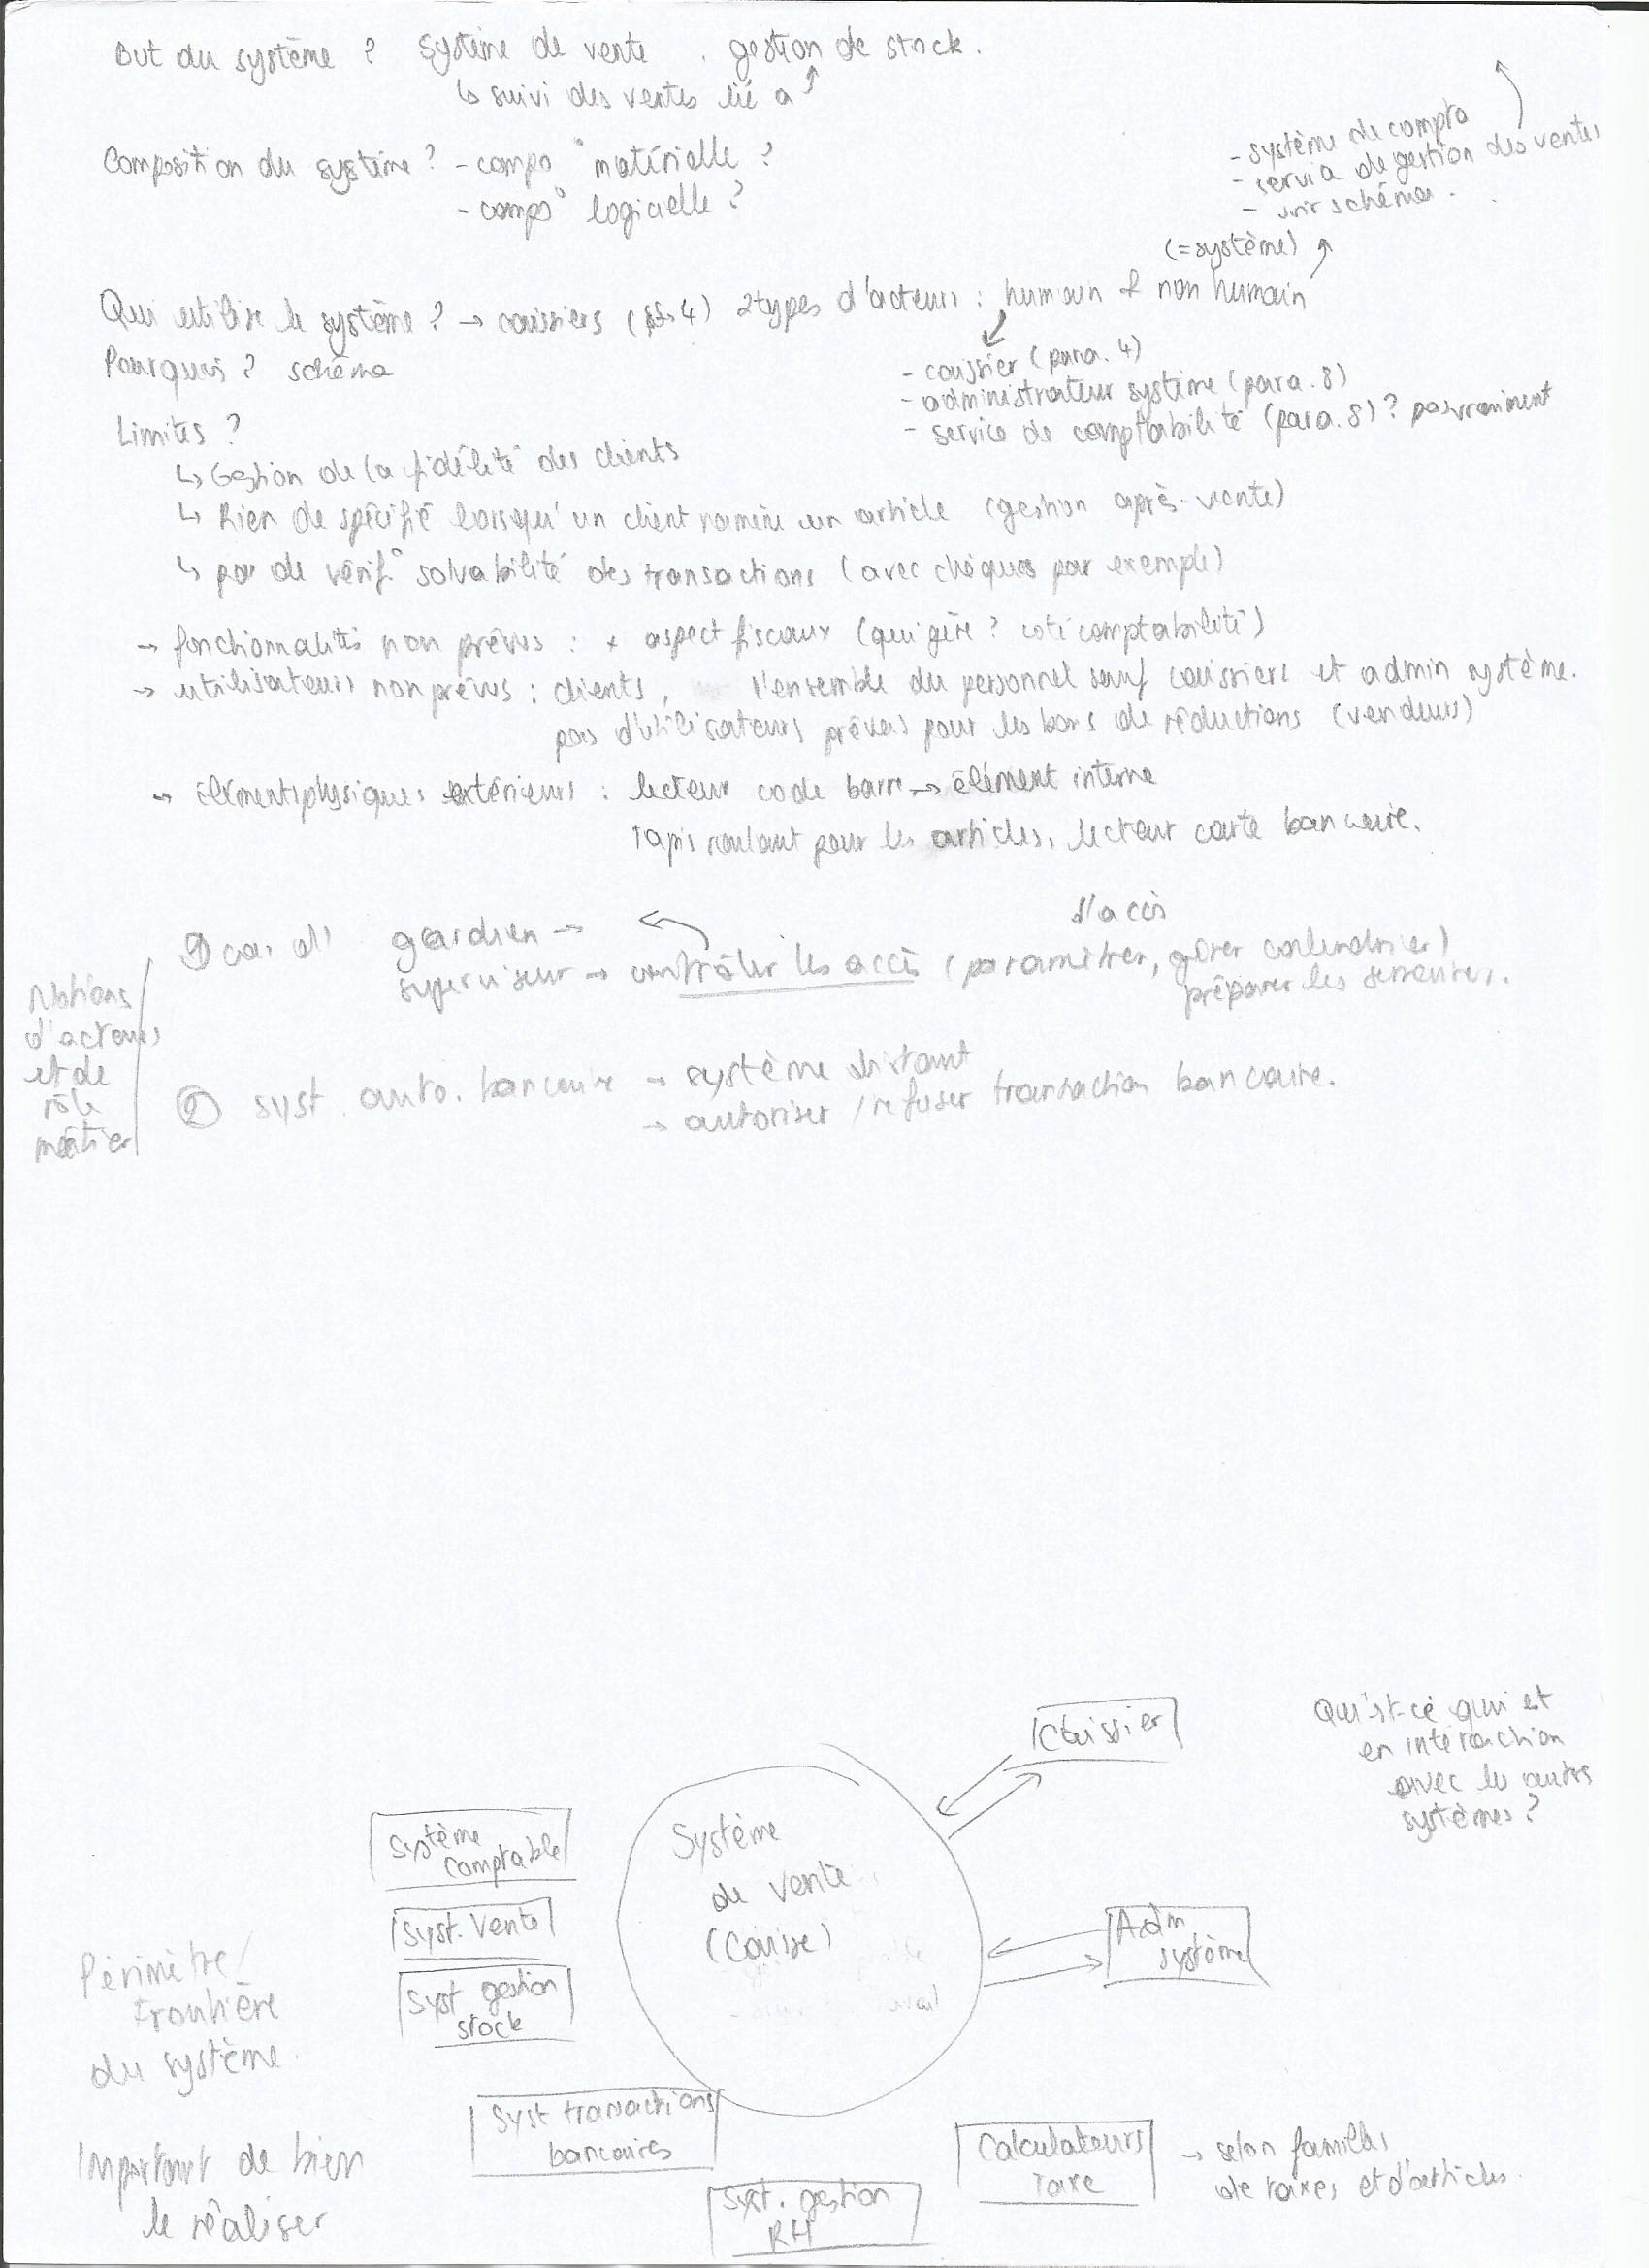 But du système ? Système de vente . gestion de stock.
↳ suivi des ventes lié à
Composition du système ? - compo° matérielle ?
- compo° logicielle ?
- système de compta
- service de gestion des ventes
- voir schéma.
(= système)
Qui utilise le système ? → caissiers (4) 2 types d'acteurs : humain & non humain
Pourquoi ? schéma
- caissier (para. 4)
- administrateur système (para. 8)
- service de comptabilité (para. 8) ? pas vraiment
Limites ?
↳ Gestion de la fidélité des clients
↳ Rien de spécifié lorsqu'un client ramène un article (gestion après-vente)
↳ pas de vérif° solvabilité des transactions (avec chèques par exemple)
→ fonctionnalités non prévues : × aspect fiscaux (qui gère ? coté comptabilité)
→ utilisateurs non prévus : clients, l'ensemble du personnel sauf caissiers et admin système.
pas d'utilisateurs prévus pour les bons de réductions (vendeurs)
→ éléments physiques extérieurs : lecteur code barre → élément interne
tapis roulant pour les articles, lecteur carte bancaire.
Notions d'acteurs et de rôle métier
① gardien →
d'accès
superviseur → contrôler les accès (paramétrer, gérer calendrier)
préparer les serrures.
② syst. auto. bancaire → système distant
→ autoriser / refuser transaction bancaire.
Caissier
Qu'est-ce qui est
en interaction
avec les autres
systèmes ?
Système
comptable
Système
de vente
(Caisse)
Syst. Vente
Adm
système
Syst gestion
stock
Périmètre /
frontière
du système.
Syst transactions
bancaires
Calculateurs
taxe
→ selon familles
de taxes et d'articles.
Important de bien
le réaliser
Syst. gestion
RH